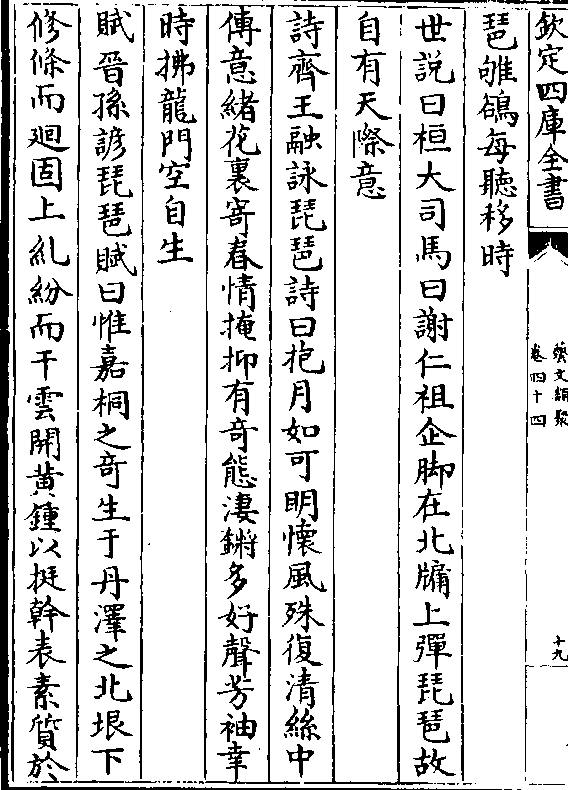 欽定四庫全書
藝文類聚
卷四十四
十九
琶雊鵒每聽移時
世說曰桓大司馬曰謝仁祖企脚在北牖上彈琵琶故
自有天際意
詩齊王融詠琵琶詩曰抱月如可明懷風殊復清絲中
傳意緒花裏寄春情掩抑有奇態淒鏘多好聲芳袖幸
時拂龍門空自生
賦晉孫諺琵琶賦曰惟嘉桐之奇生于丹澤之北垠下
修條而迴固上糺紛而干雲開黃鍾以挺幹表素質於